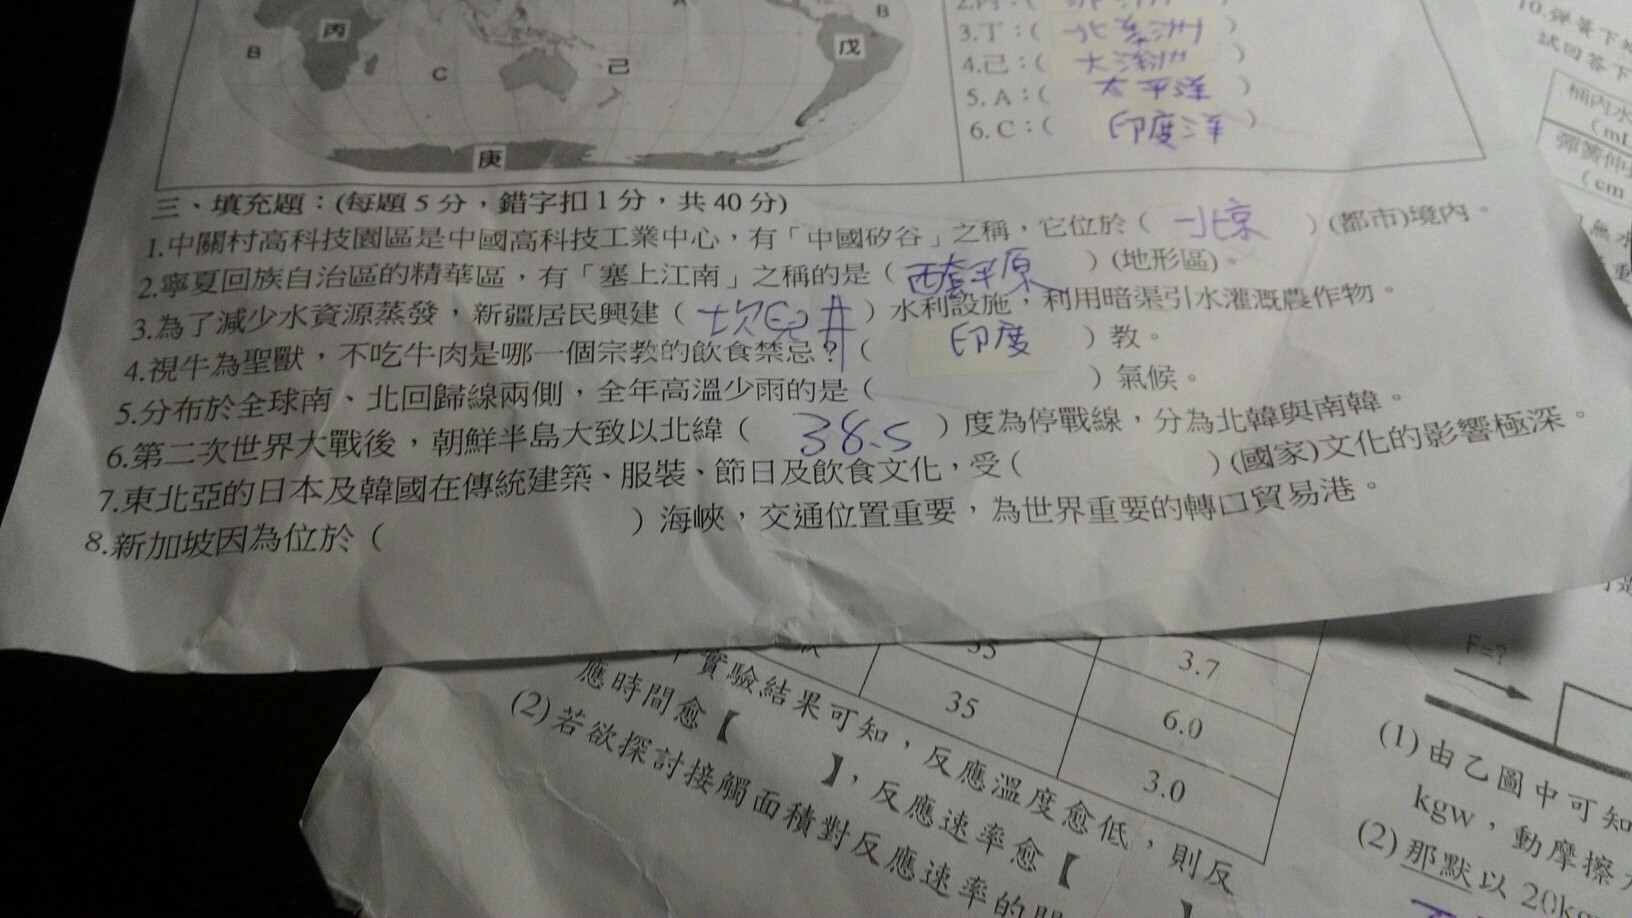 丙
B
C
己
戊
B
A
庚
3.丁：( 北美洲 )
4.己：( 大洋洲 )
5. A：( 太平洋 )
6. C：( 印度洋 )
三、填充題：(每題 5 分，錯字扣 1 分，共 40 分)
1.中關村高科技園區是中國高科技工業中心，有「中國矽谷」之稱，它位於（ 北京 ）(都市)境內。
2.寧夏回族自治區的精華區，有「塞上江南」之稱的是（ 西套平原 ）(地形區)。
3.為了減少水資源蒸發，新疆居民興建（ 坎兒井 ）水利設施，利用暗渠引水灌溉農作物。
4.視牛為聖獸，不吃牛肉是哪一個宗教的飲食禁忌？（ 印度 ）教。
5.分布於全球南、北回歸線兩側，全年高溫少雨的是（ ）氣候。
6.第二次世界大戰後，朝鮮半島大致以北緯（ 38.5 ）度為停戰線，分為北韓與南韓。
7.東北亞的日本及韓國在傳統建築、服裝、節日及飲食文化，受（ ）(國家)文化的影響極深。
8.新加坡因為位於（ ）海峽，交通位置重要，為世界重要的轉口貿易港。
10.彈簧下
試回答下
桶內水
(mL
(cm
無水
35 3.7
35 6.0
3.0
實驗結果可知，反應溫度愈低，則反
應時間愈【 】，反應速率愈【 】
(2)若欲探討接觸面積對反應速率的
F=?
(1)由乙圖中可知
kgw，動摩擦
(2)那默以 20kg